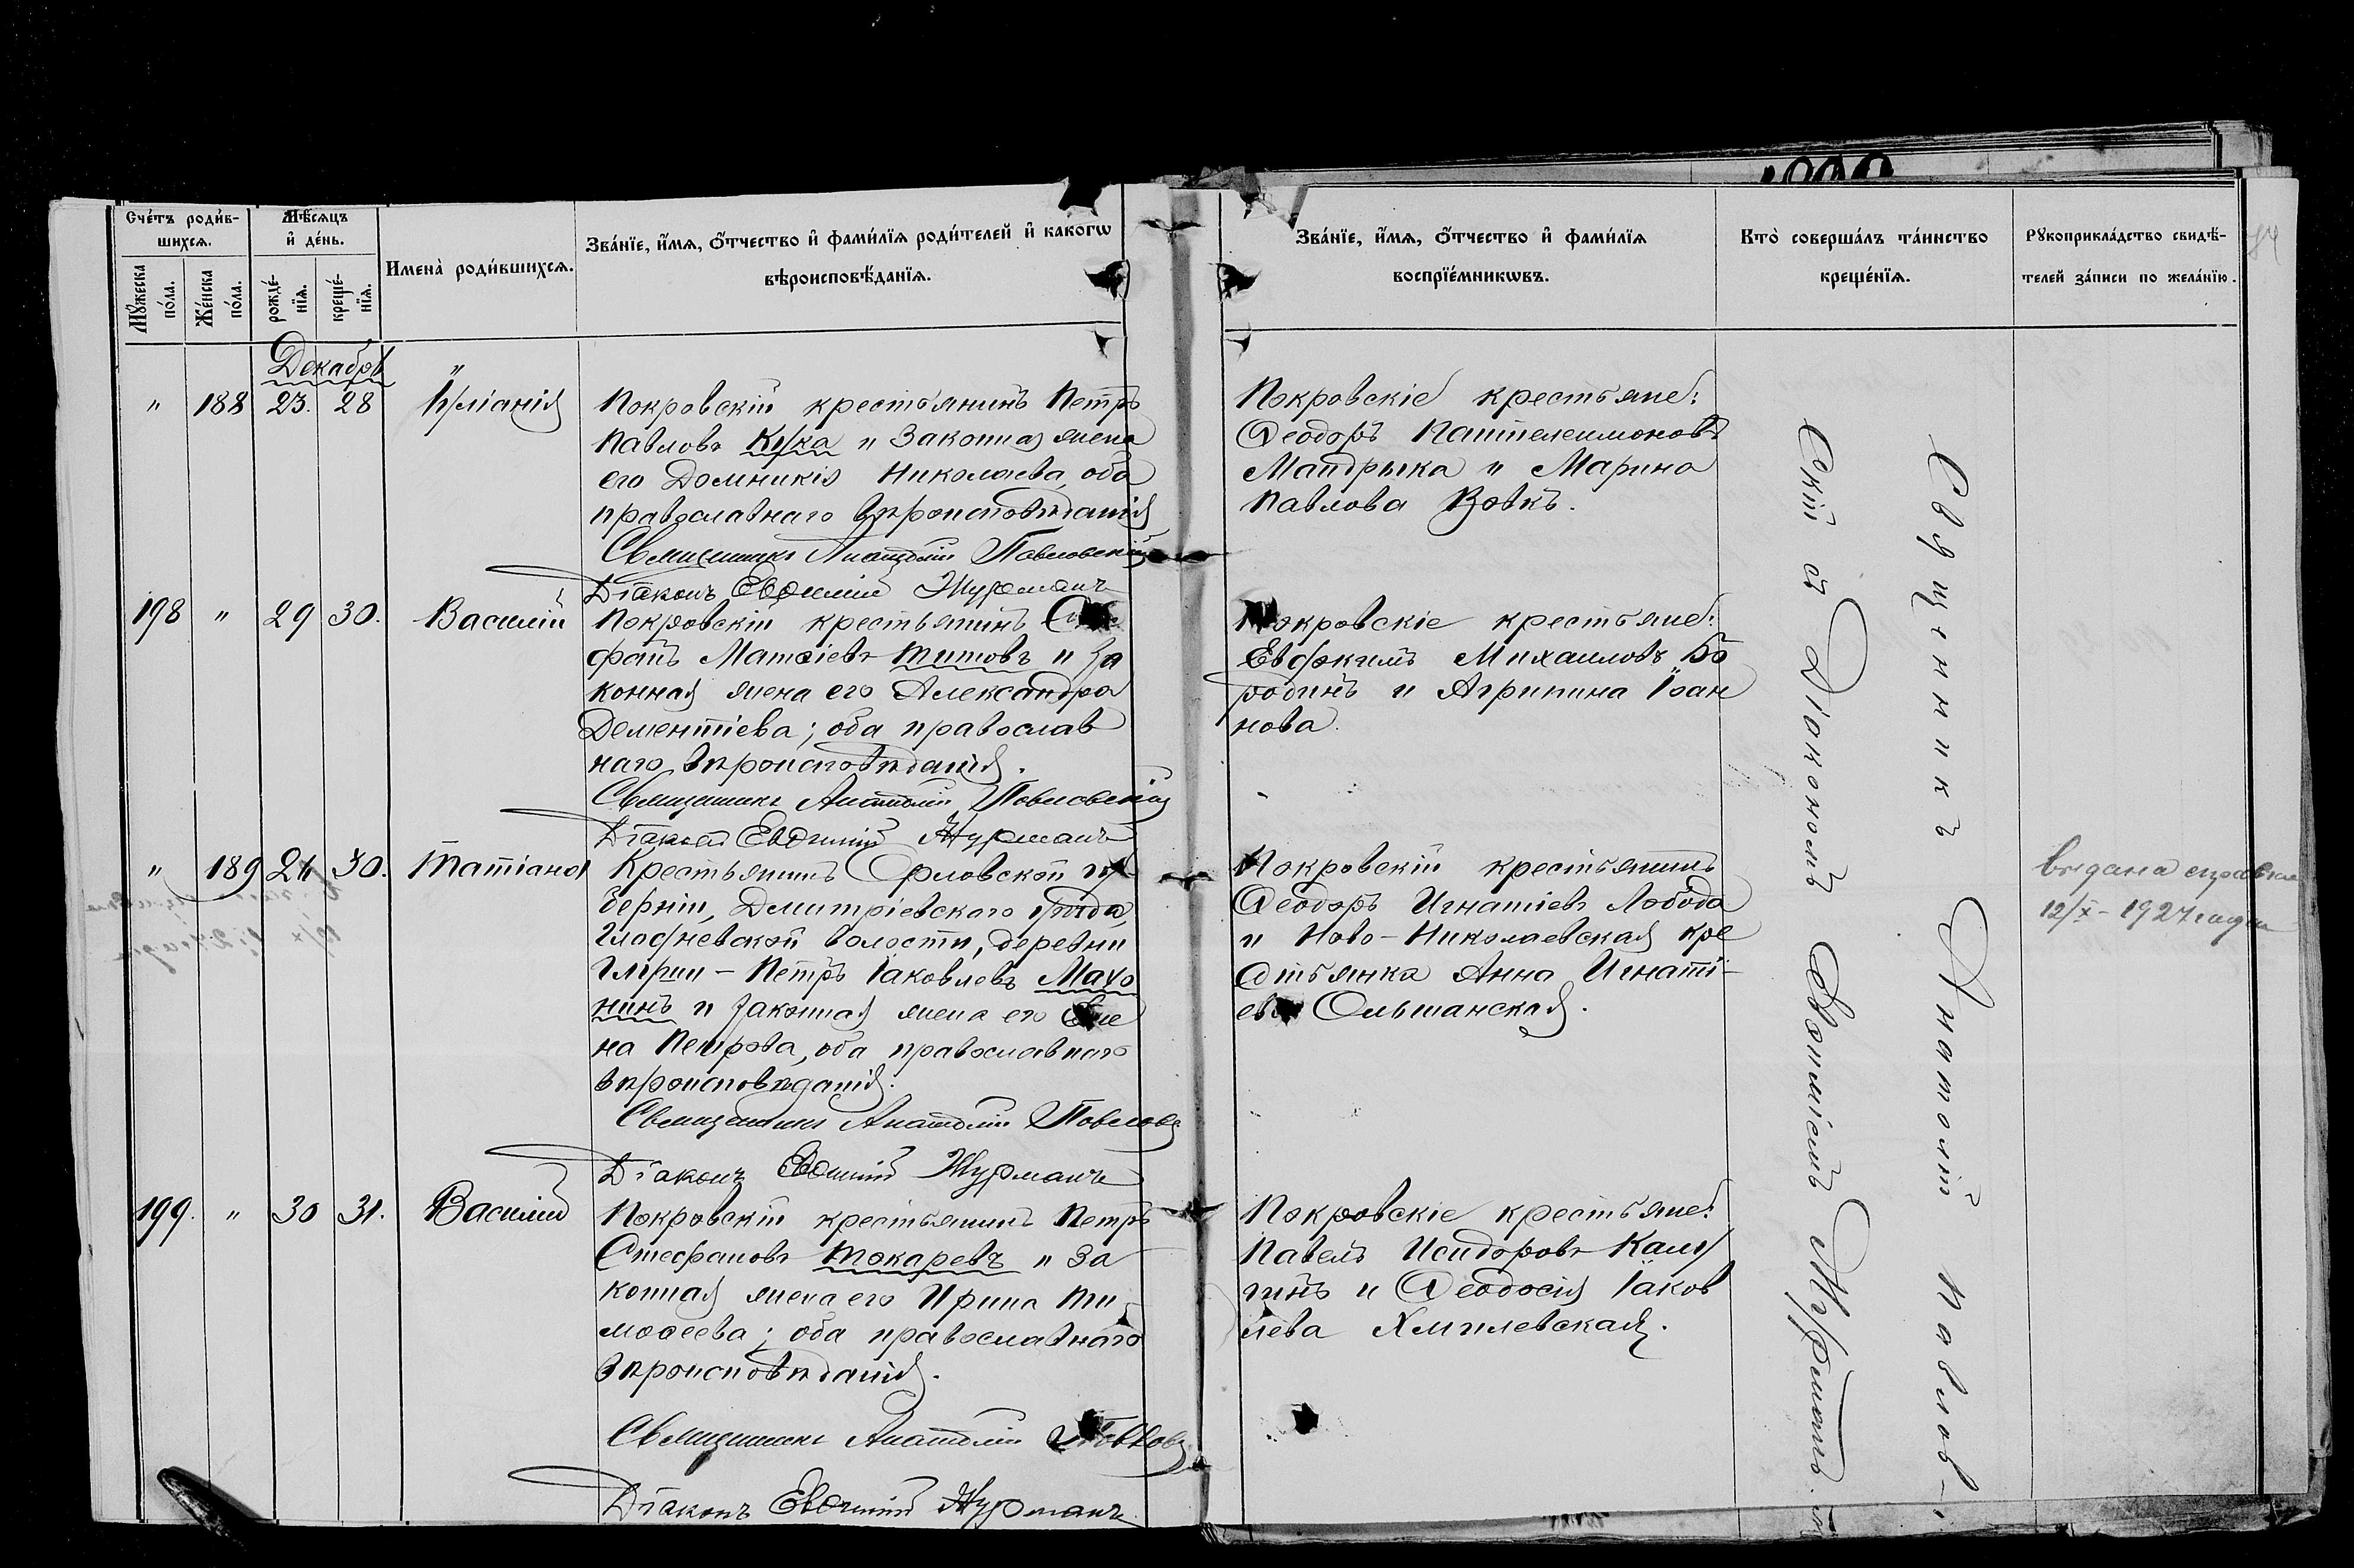 Счетъ родив-
шихся.
Мѣсяцъ
и день.
Мужеска
пола.
Женска
пола.
рожде-
нія.
креще-
нія.
Имена родившихся.
Званіе, имя, отчество и фамилія родителей и какого
вѣроисповѣданія.
Званіе, имя, отчество и фамилія
воспріемниковъ.
Кто совершалъ таинство
крещенія.
Рукоприкладство свидѣ-
телей записи по желанію.
Декабрь
" 188 23. 28 Іуліанія
Покровскій крестьянинъ Петръ
Павловъ Кука и законная жена
его Домникія Николаева, оба
православнаго вѣроисповѣданія
Священникъ Анатолій Павловскій
Діаконъ Евѳимій Журманъ
Покровскіе крестьяне:
Ѳеодоръ Пантелеимоновъ
Мандрыка и Марина
Павлова Вовкъ.
198 " 29 30. Василій
Покровскій крестьянинъ
фанъ Матѳіевъ Титовъ и за
конная жена его Александра
Дементіева; оба православ
наго вѣроисповѣданія.
Священникъ Анатолій Павловскій
Діаконъ Евѳимій Журманъ
Покровскіе крестьяне:
Евдокимъ Михаиловъ Бо
родинъ и Агрипина Іоан
нова.
" 189 24 30. Татіана
Крестьянинъ Орловской гу
берніи, Дмитріевскаго уѣзда,
волости, деревни
Петръ Іаковлевъ Махо
нинъ и законная жена его Еле
на Петрова, оба православнаго
вѣроисповѣданія.
Священникъ Анатолій Павловс
Діаконъ Евѳимій Журманъ
Покровскій крестьянинъ
Ѳеодоръ Игнатіевъ Лобода
и Ново-Николаевская кре
стьянка Анна Игнаті-
ева Ольшанская.
выдана справка
12/X - 1927 года
199. " 30 31. Василій
Покровскій крестьянинъ Петръ
Стефановъ Токаревъ и за
конная жена его Ирина Ти
моѳеева; оба православнаго
вѣроисповѣданія.
Священникъ Анатолій
Діаконъ Евѳимій Журманъ
Покровскіе крестьяне:
Павелъ Исидоровъ Калу
гинъ и Ѳеодосія Іаков
лева Хмилевская.
Священникъ Анатолій Павлов-
скій съ Діакономъ Евѳиміемъ Журманъ.